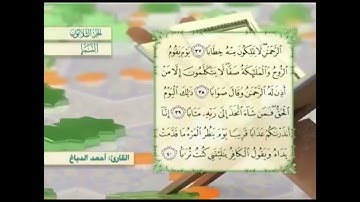 الجزء الثلاثون
النبأ
الرَّحْمَٰنِ لَا يَمْلِكُونَ مِنْهُ خِطَابًا ٣٧ يَوْمَ يَقُومُ
الرُّوحُ وَالْمَلَائِكَةُ صَفًّا لَا يَتَكَلَّمُونَ إِلَّا مَنْ
أَذِنَ لَهُ الرَّحْمَٰنُ وَقَالَ صَوَابًا ٣٨ ذَٰلِكَ الْيَوْمُ
الْحَقُّ فَمَنْ شَاءَ اتَّخَذَ إِلَىٰ رَبِّهِ مَآبًا ٣٩ إِنَّا
أَنْذَرْنَاكُمْ عَذَابًا قَرِيبًا يَوْمَ يَنْظُرُ الْمَرْءُ مَا قَدَّمَتْ
يَدَاهُ وَيَقُولُ الْكَافِرُ يَا لَيْتَنِي كُنْتُ تُرَابًا ٤٠
القارئ: أحمد الدباغ